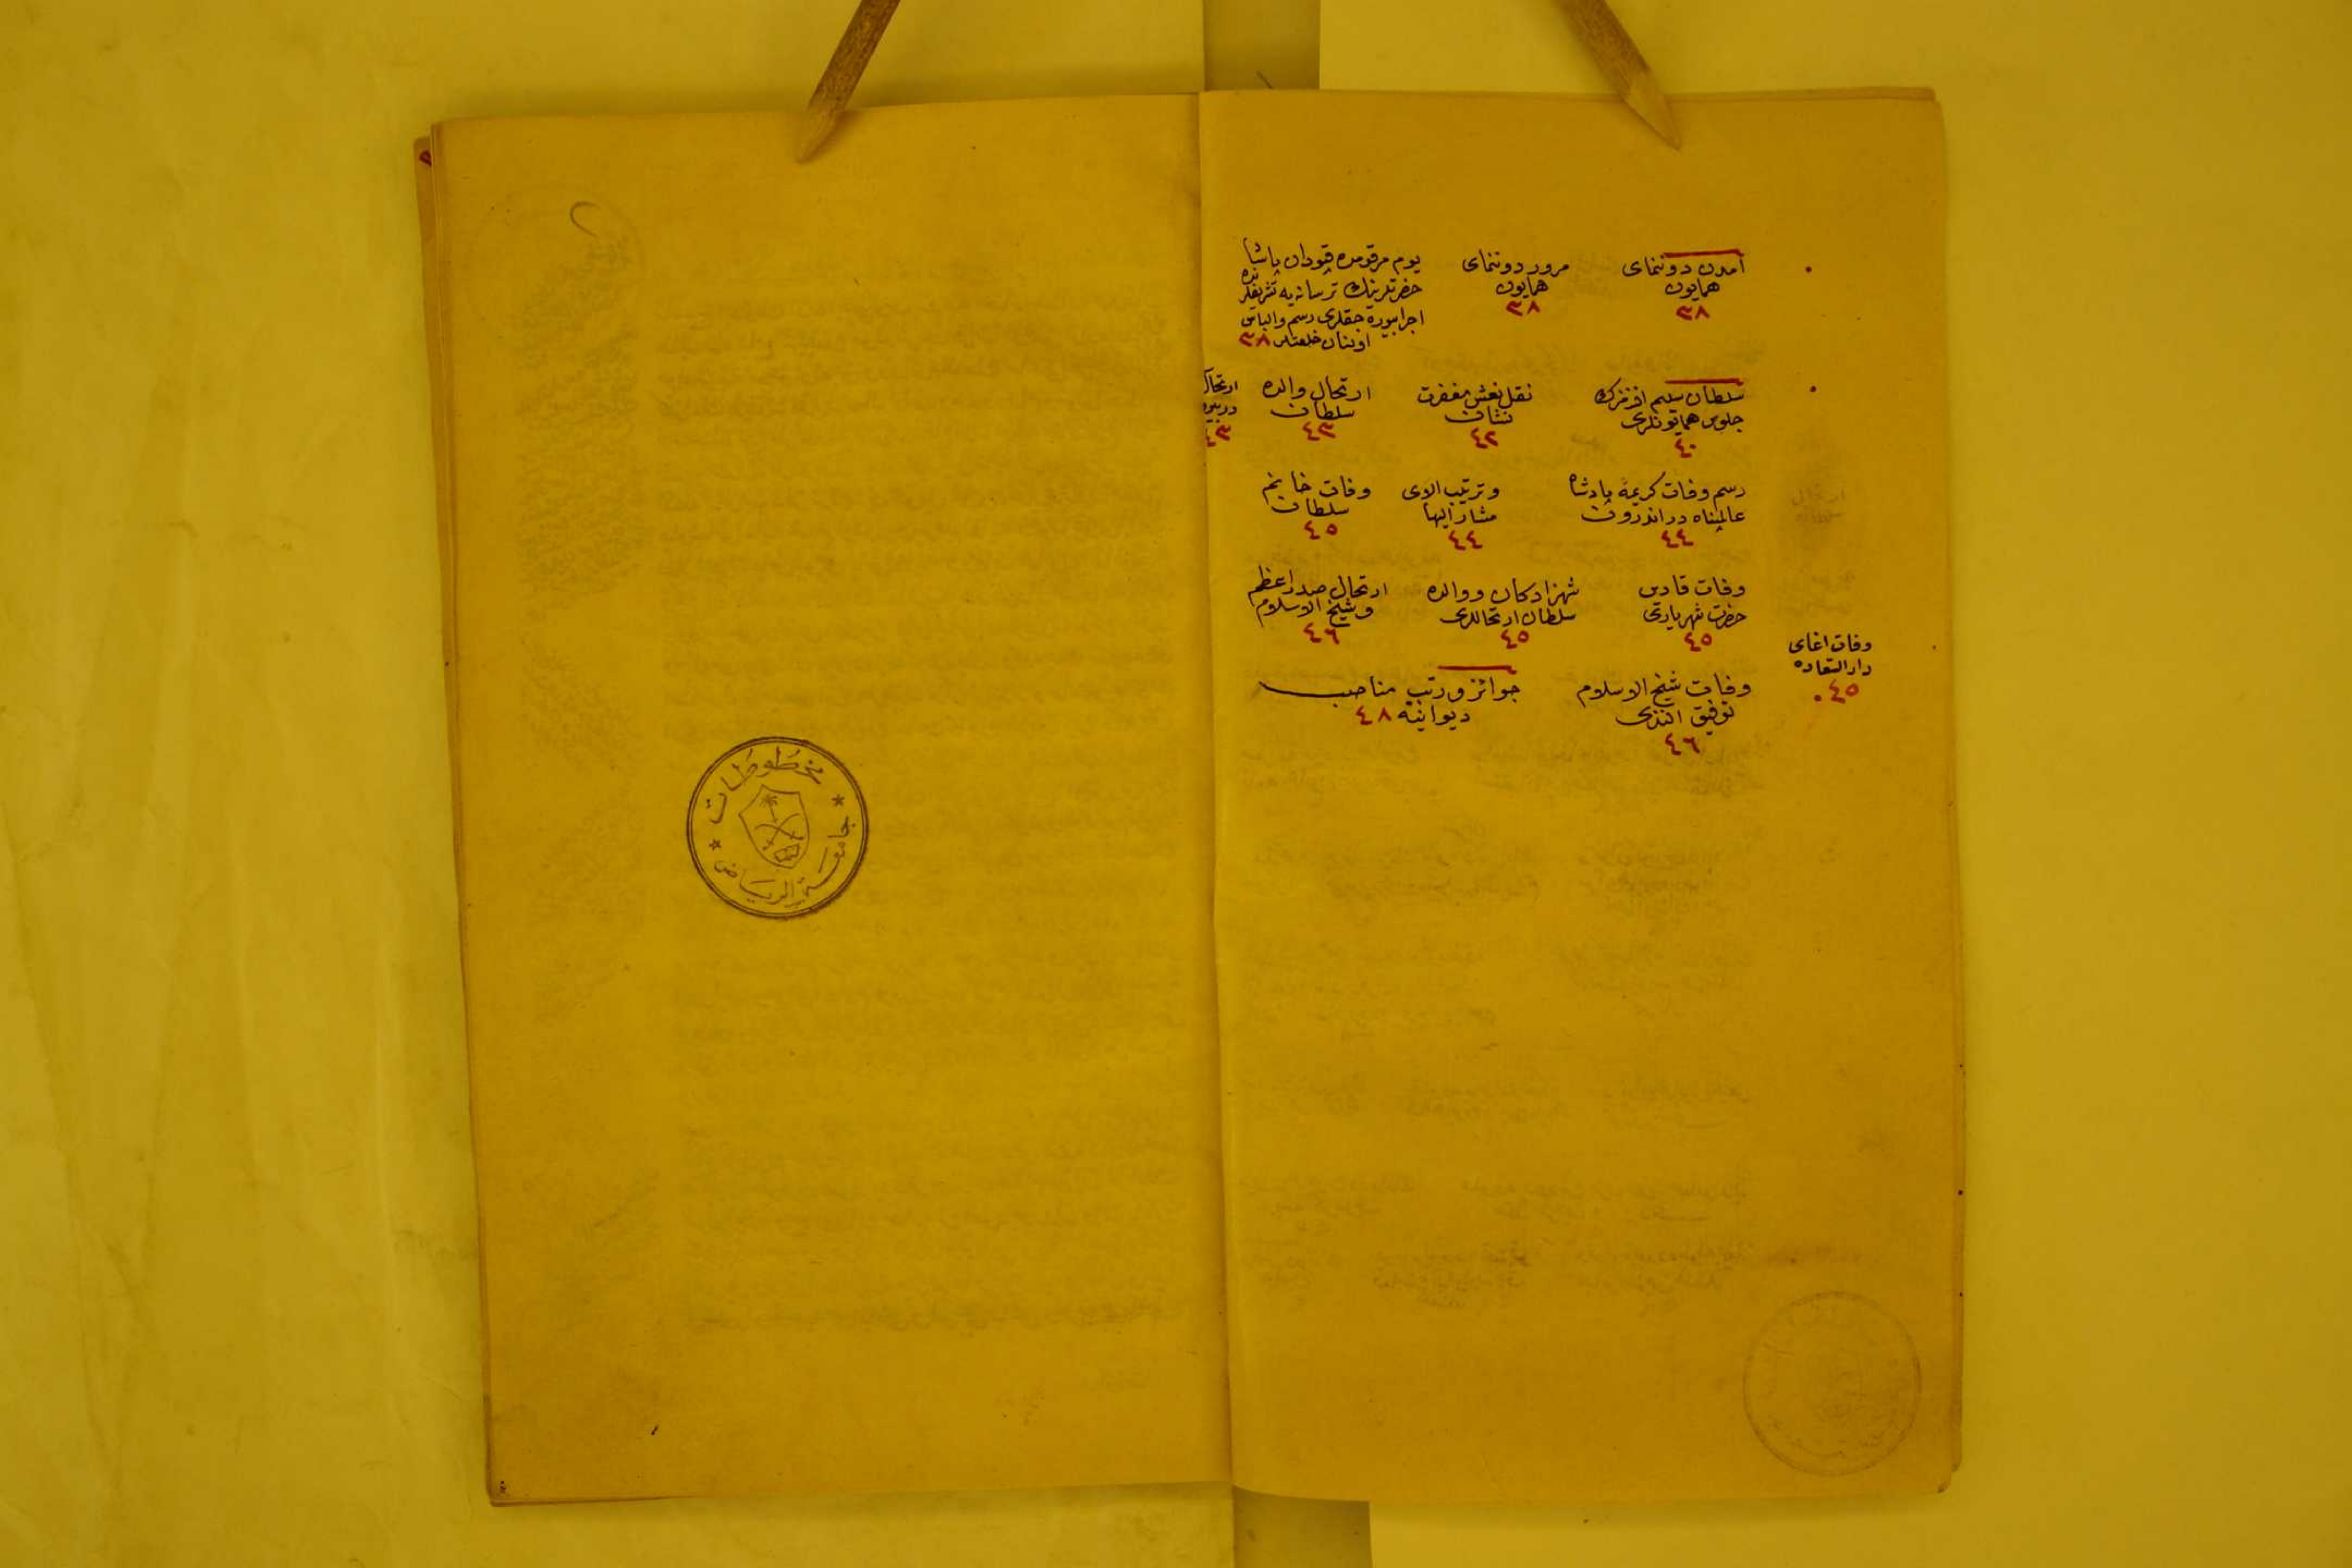 آمدن دوننمای
همایون
٣٨
مرور دوننمای
همایون
٣٨
یوم مرقومده قپودان پاشا
حضرتلرینك ترسانه‌یه تشریفلرنده
اجرا بیوره‌جقلری رسم والباس
اولنان خلعتلر ٣٨
سلطان سلیم افندینك
جلوس همایونلری
٤٠
نقل نعش مغفرت
نشان
٤٢
ارتحال والده
سلطان
٤٣
ارتحال
٤٣
رسم وفات كریمهٔ پادشاه
عالمپناه در اندرون
٤٤
وترتیب الای
مشار الیها
٤٤
وفات خانم
سلطان
٤٥
وفات قادین
حضرت شهریاری
٤٥
شهزادكان ووالده
سلطان ارتحاللری
٤٥
ارتحال صدر اعظم
وشیخ الاسلام
٤٦
وفات اغای
دار السعاده
٤٥
وفات شیخ الاسلام
توفیق افندی
٤٦
جوائز ورتب مناصب
دیوانیه ٤٨
مخطوطات
جامعة الرياض